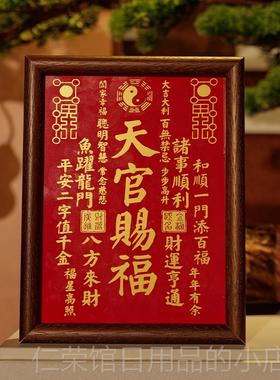 和順一門添百福
年年有余
諸事順利
財運亨通
大吉大利
百無禁忌
步步高升
天官賜福
家幸福
聰明智慧
常念慈悲
魚躍龍門
八方來財
平安二字值千金
福星高照
仁荣馆日用品的小店